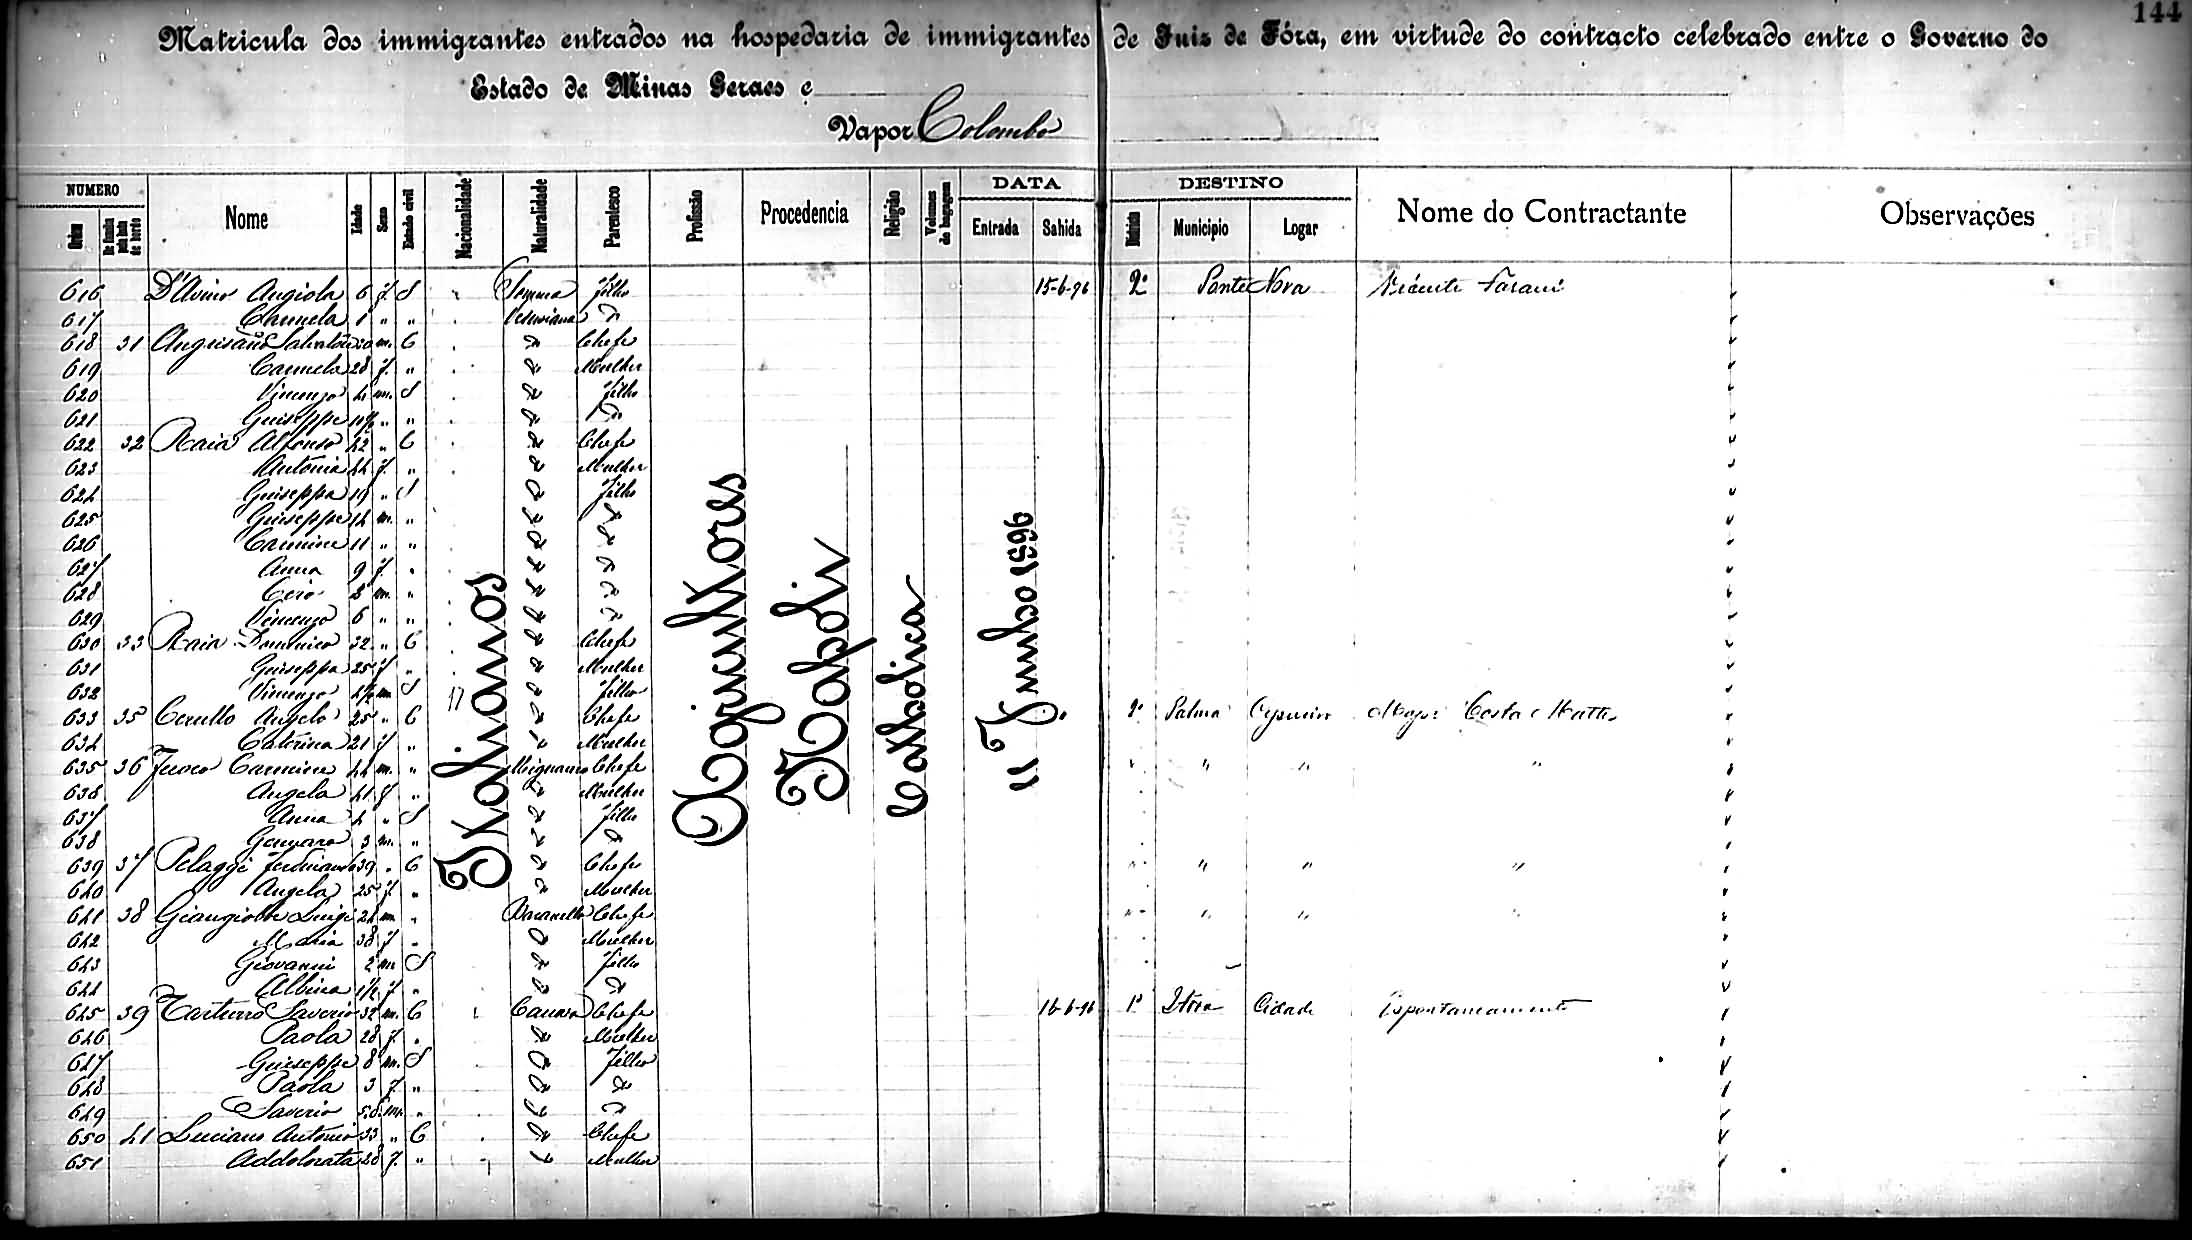 144
Matricula dos immigrantes entrados na hospedaria de immigrantes de Juiz de Fóra, em virtude do contracto celebrado entre o Governo do
Estado de Minas Geraes e
Vapor Colombo
NUMERO Nome Idade Sexo Estado civil Nacionalidade Naturalidade Parentesco Profissão Procedencia Religião Volumes de bagagem DATA DESTINO Nome do Contractante Observações
Ordem De familia pela lista de bordo Entrada Sahida Districto Municipio Logar
616 D'Avino Angiola 6 f. S Somma Filho 15-6-96 2º Ponte Nova
617 Carmela 1 " " Vesuviana Dº
618 31 Angrisano Salvatore 30 m. C Dº Chefe
619 Carmela 28 f. " Dº Mulher
620 Vincenzo 4 m. S Dº Filho
621 Guiseppe " " Dº Dº
622 32 Raia Alfonso 42 " C Dº Chefe
623 Antonia 44 f. " Dº Mulher
624 Guiseppa 19 " S Dº Filho
625 Guiseppe 14 m. " Dº Dº
626 Carmine 11 " " Dº Dº
627 Anna 9 f. " Dº Dº
628 Ciro 8 m. " Dº Dº
629 Vincenzo 6 " " Dº Dº
630 33 Raia Domenico 32 " C Dº Chefe
631 Guiseppa 25 f " Dº Mulher
632 Vincenzo m S 17 Dº Filho
633 35 Cerullo Angelo 25 " C Dº Chefe " 2º Palma Cysneiro Major Costa Mattos
634 Caterina 21 f " Dº Mulher
635 36 Fuoco Carmine 44 m. " Mignano Chefe " " " "
636 Angela 41 f " Dº Mulher
637 Anna 4 " S Dº Filho
638 Gennaro 3 m. " Dº Dº
639 37 Pelaggi Ferdinando 39 " C Dº Chefe " " " "
640 Angela 25 f. " Dº Mulher
641 38 Luigi 24 m. " Chefe " " " "
642 Maria 38 f " Dº Mulher
643 Giovanni 2 m S Dº Filho
644 Albina 1½ f " Dº Dº
645 39 Saverio 32 m. C Canosa Chefe 16-6-96 1º Cidade Espontaneamente
646 Paola 28 f. " Dº Mulher
647 Guiseppe 8 m. S Dº Filho
648 Paola 3 f " Dº Dº
649 Saverio m. " Dº Dº
650 41 Luciano Antonio 33 " C Dº Chefe
651 Addolorata 28 f. " Dº Mulher
Italianos
Agricultores
Napoli
Catholica
11 Junho 1896